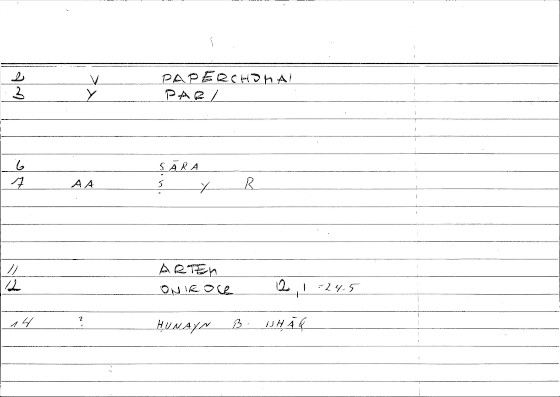 2 V PAPERCHOMAI
3 Y PAR/
6 ṢĀRA
7 AA Ṣ Y R
11 ARTEM
12 ONIROCR 12,1 =24.5
14 ? ḤUNAYN B. ISḤĀQ